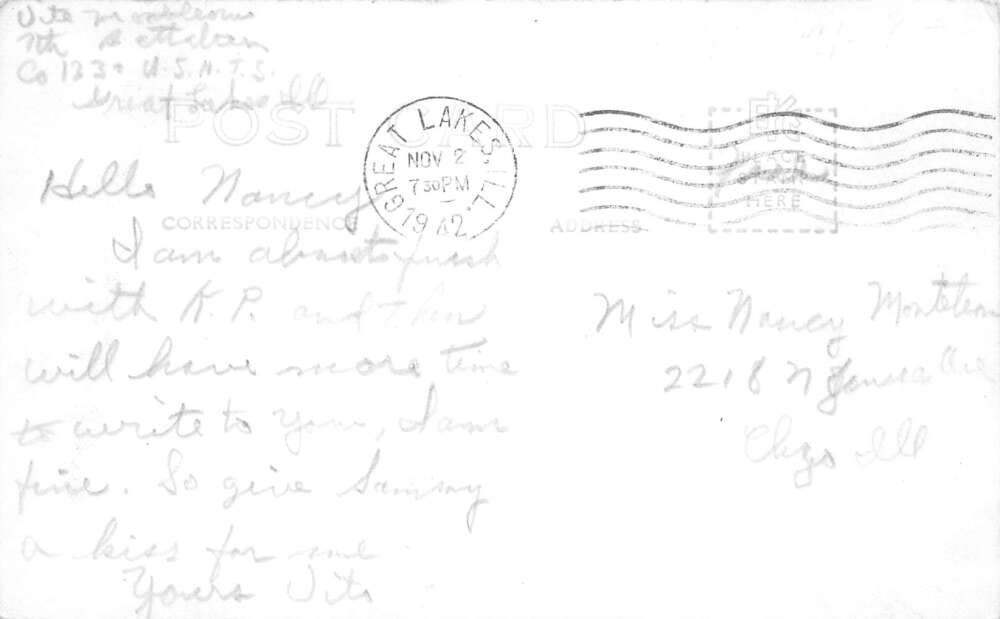 Vito Monteleone
7th Battalion
Co 1239 U.S.N.T.S.
Great Lakes Ill
POST CARD
GREAT LAKES, ILL.
NOV 2
7 30 PM
1942
PLACE
STAMP
HERE
CORRESPONDENCE
ADDRESS
Hello Nancy
I am about finish
with K.P. and then
will have more time
to write to you, I am
fine. So give Sammy
a kiss for me
Yours Vito
Miss Nancy Monteleone
2218 N Ave
Chgo Ill